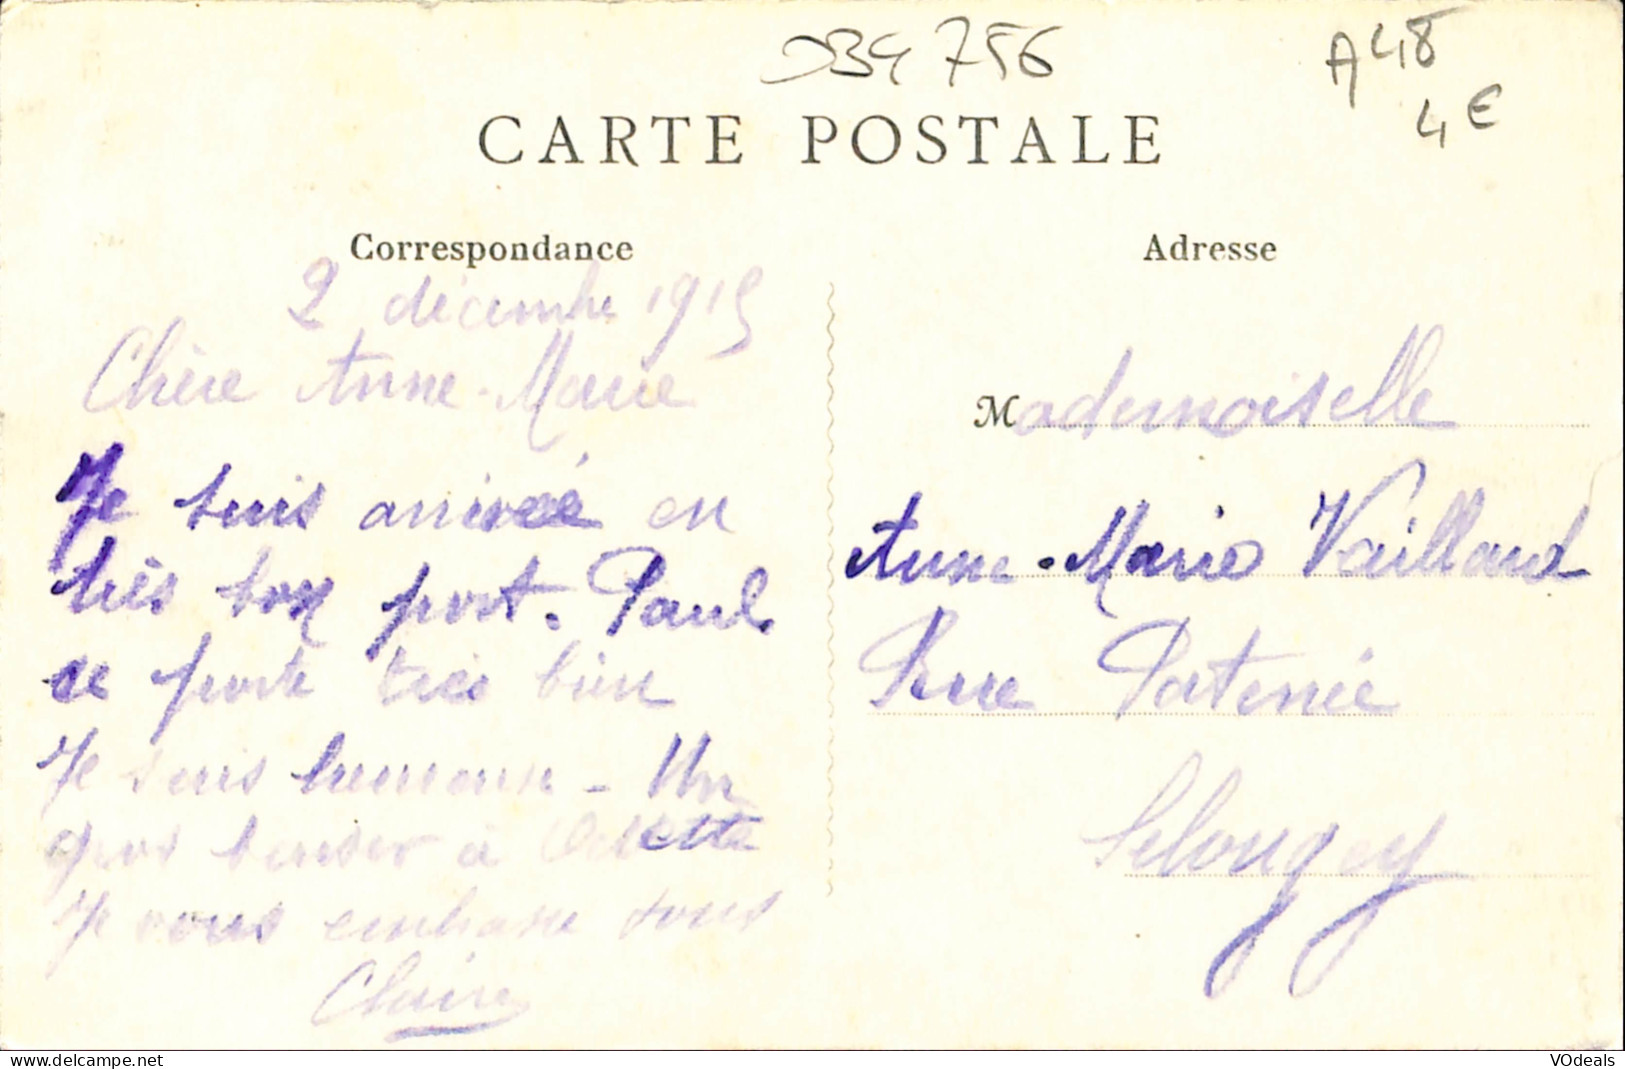 DB4756
A48
4€
CARTE POSTALE
Correspondance
Adresse
2 décembre 1915
Chère Anne-Marie
Je suis arrivée en
très bon port. Paul
se porte très bien
Je suis heureuse - Un
gros baiser à Odette
Je vous embrasse tous
Claire
Mademoiselle
Anne-Marie Vaillaud
Rue
Selongey
www.delcampe.net
VOdeals